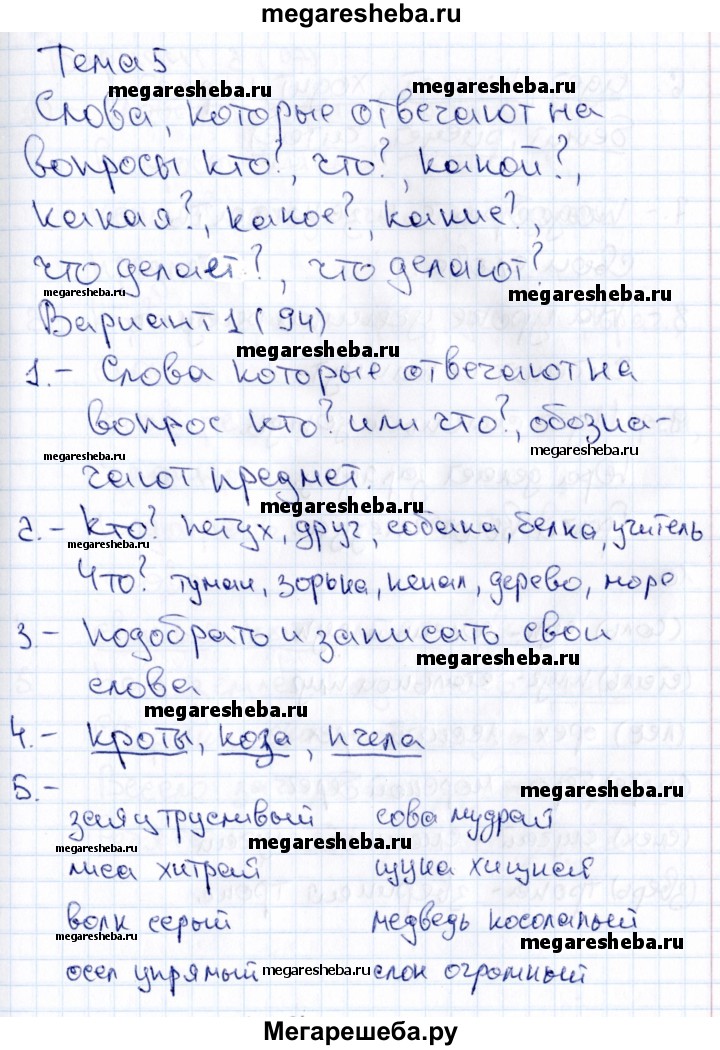 megaresheba.ru
Тема 5
megaresheba.ru
Слова, которые отвечают на
вопросы кто?, что?, какой?,
какая?, какое?, какие?,
что делает?, что делают?
megaresheba.ru megaresheba.ru
Вариант 1 (94)
megaresheba.ru
1.- Слова которые отвечают на
megaresheba.ru
вопрос кто? или что?, обозна-
megaresheba.ru megaresheba.ru
чают предмет.
megaresheba.ru
2.- Кто? петух, друг, собака, белка, учитель
megaresheba.ru
Что? туман, зорька, пенал, дерево, море
3.- подобрать и записать свои
megaresheba.ru
слова
megaresheba.ru
4.- кроты, коза, пчела
5.-
megaresheba.ru
заяц трусливый сова мудрая
megaresheba.ru megaresheba.ru
лиса хитрая щука хищная
волк серый медведь косолапый
megaresheba.ru megaresheba.ru
осел упрямый megaresheba.ru слон огромный
Мегарешеба.ру